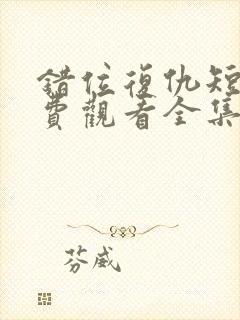 錯位復仇短
費觀看全集
芬威